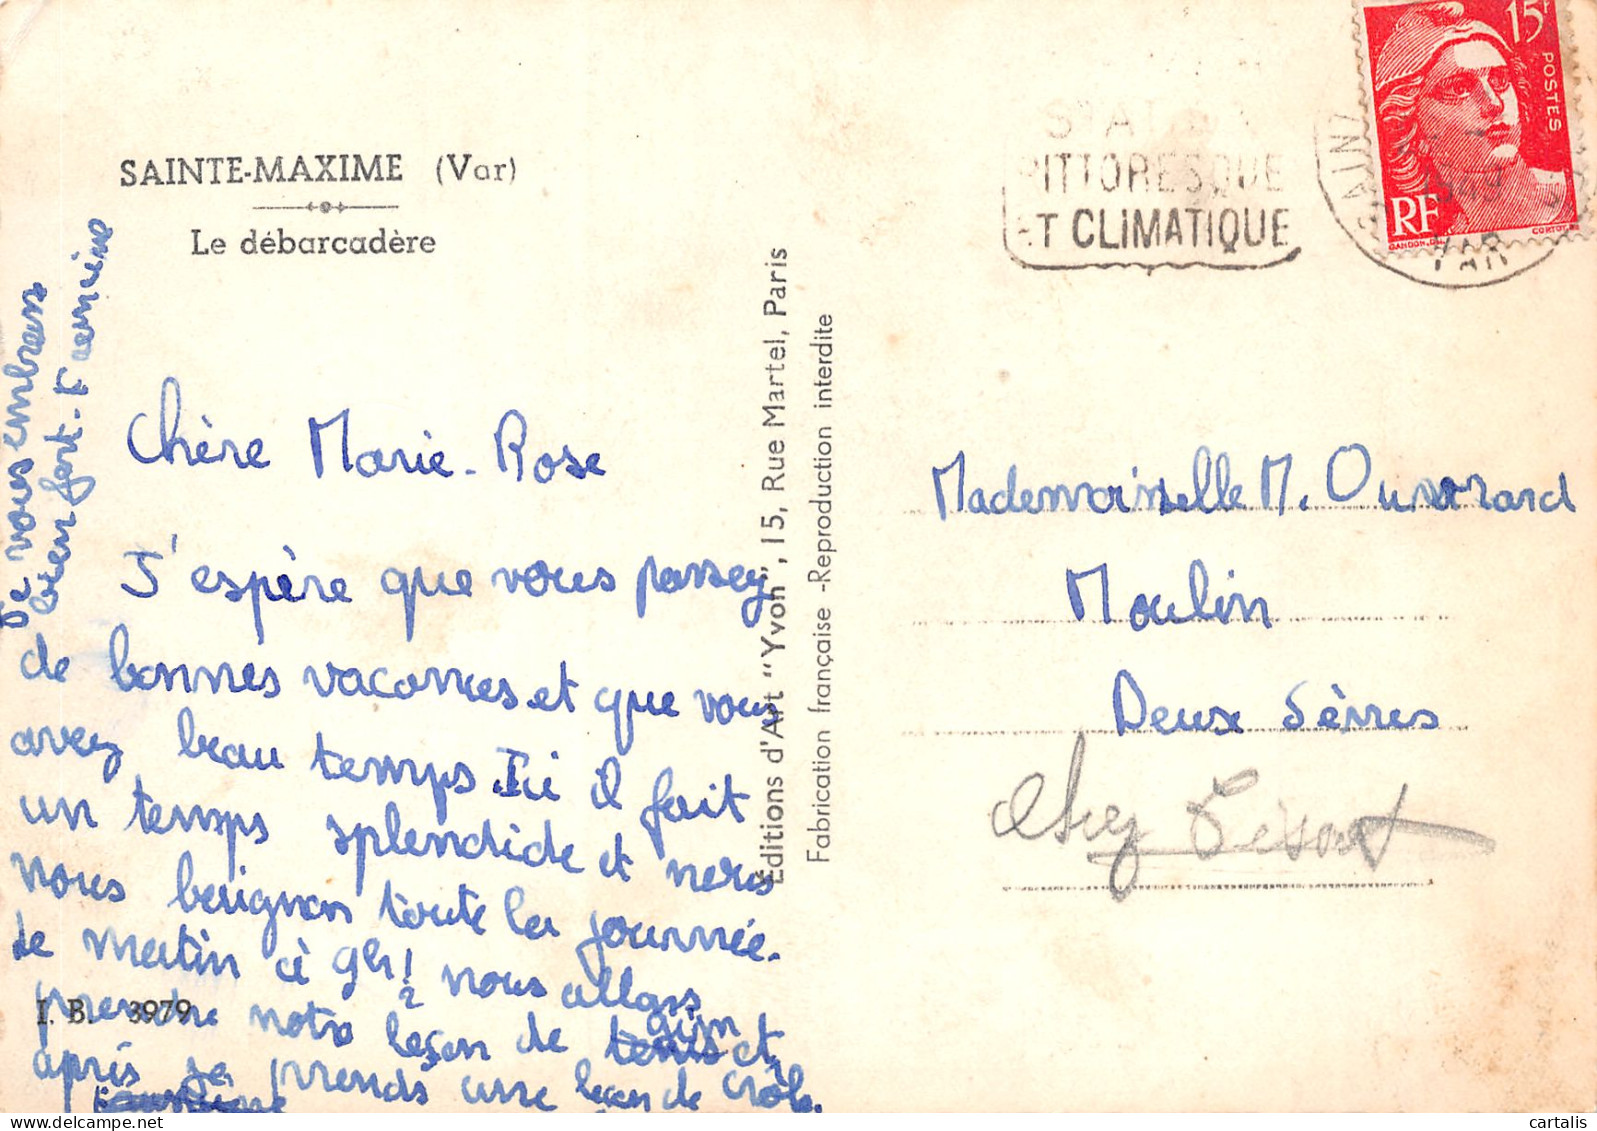 SAINTE-MAXIME (Var)
Le débarcadère
Chère Marie-Rose
J'espère que vous passez
de bonnes vacances et que vous
avez beau temps. Ici il fait
un temps splendide et nous
nous baignons toute la journée.
Le matin à 9h 1/2 nous allons
prendre notre leçon de gym et
après je prends une leçon de
Je vous embrasse
bien fort.
I. B. 3979
Éditions d'Art "Yvon", 15, Rue Martel, Paris
Fabrication française - Reproduction interdite
STATION
PITTORESQUE
ET CLIMATIQUE
VAR
15F
POSTES
RF
GANDON.DEL
CORTOT
Mademoiselle M. Ouvrard
Moulin
Deux Sèvres
chez
cartalis sur delcampe.net